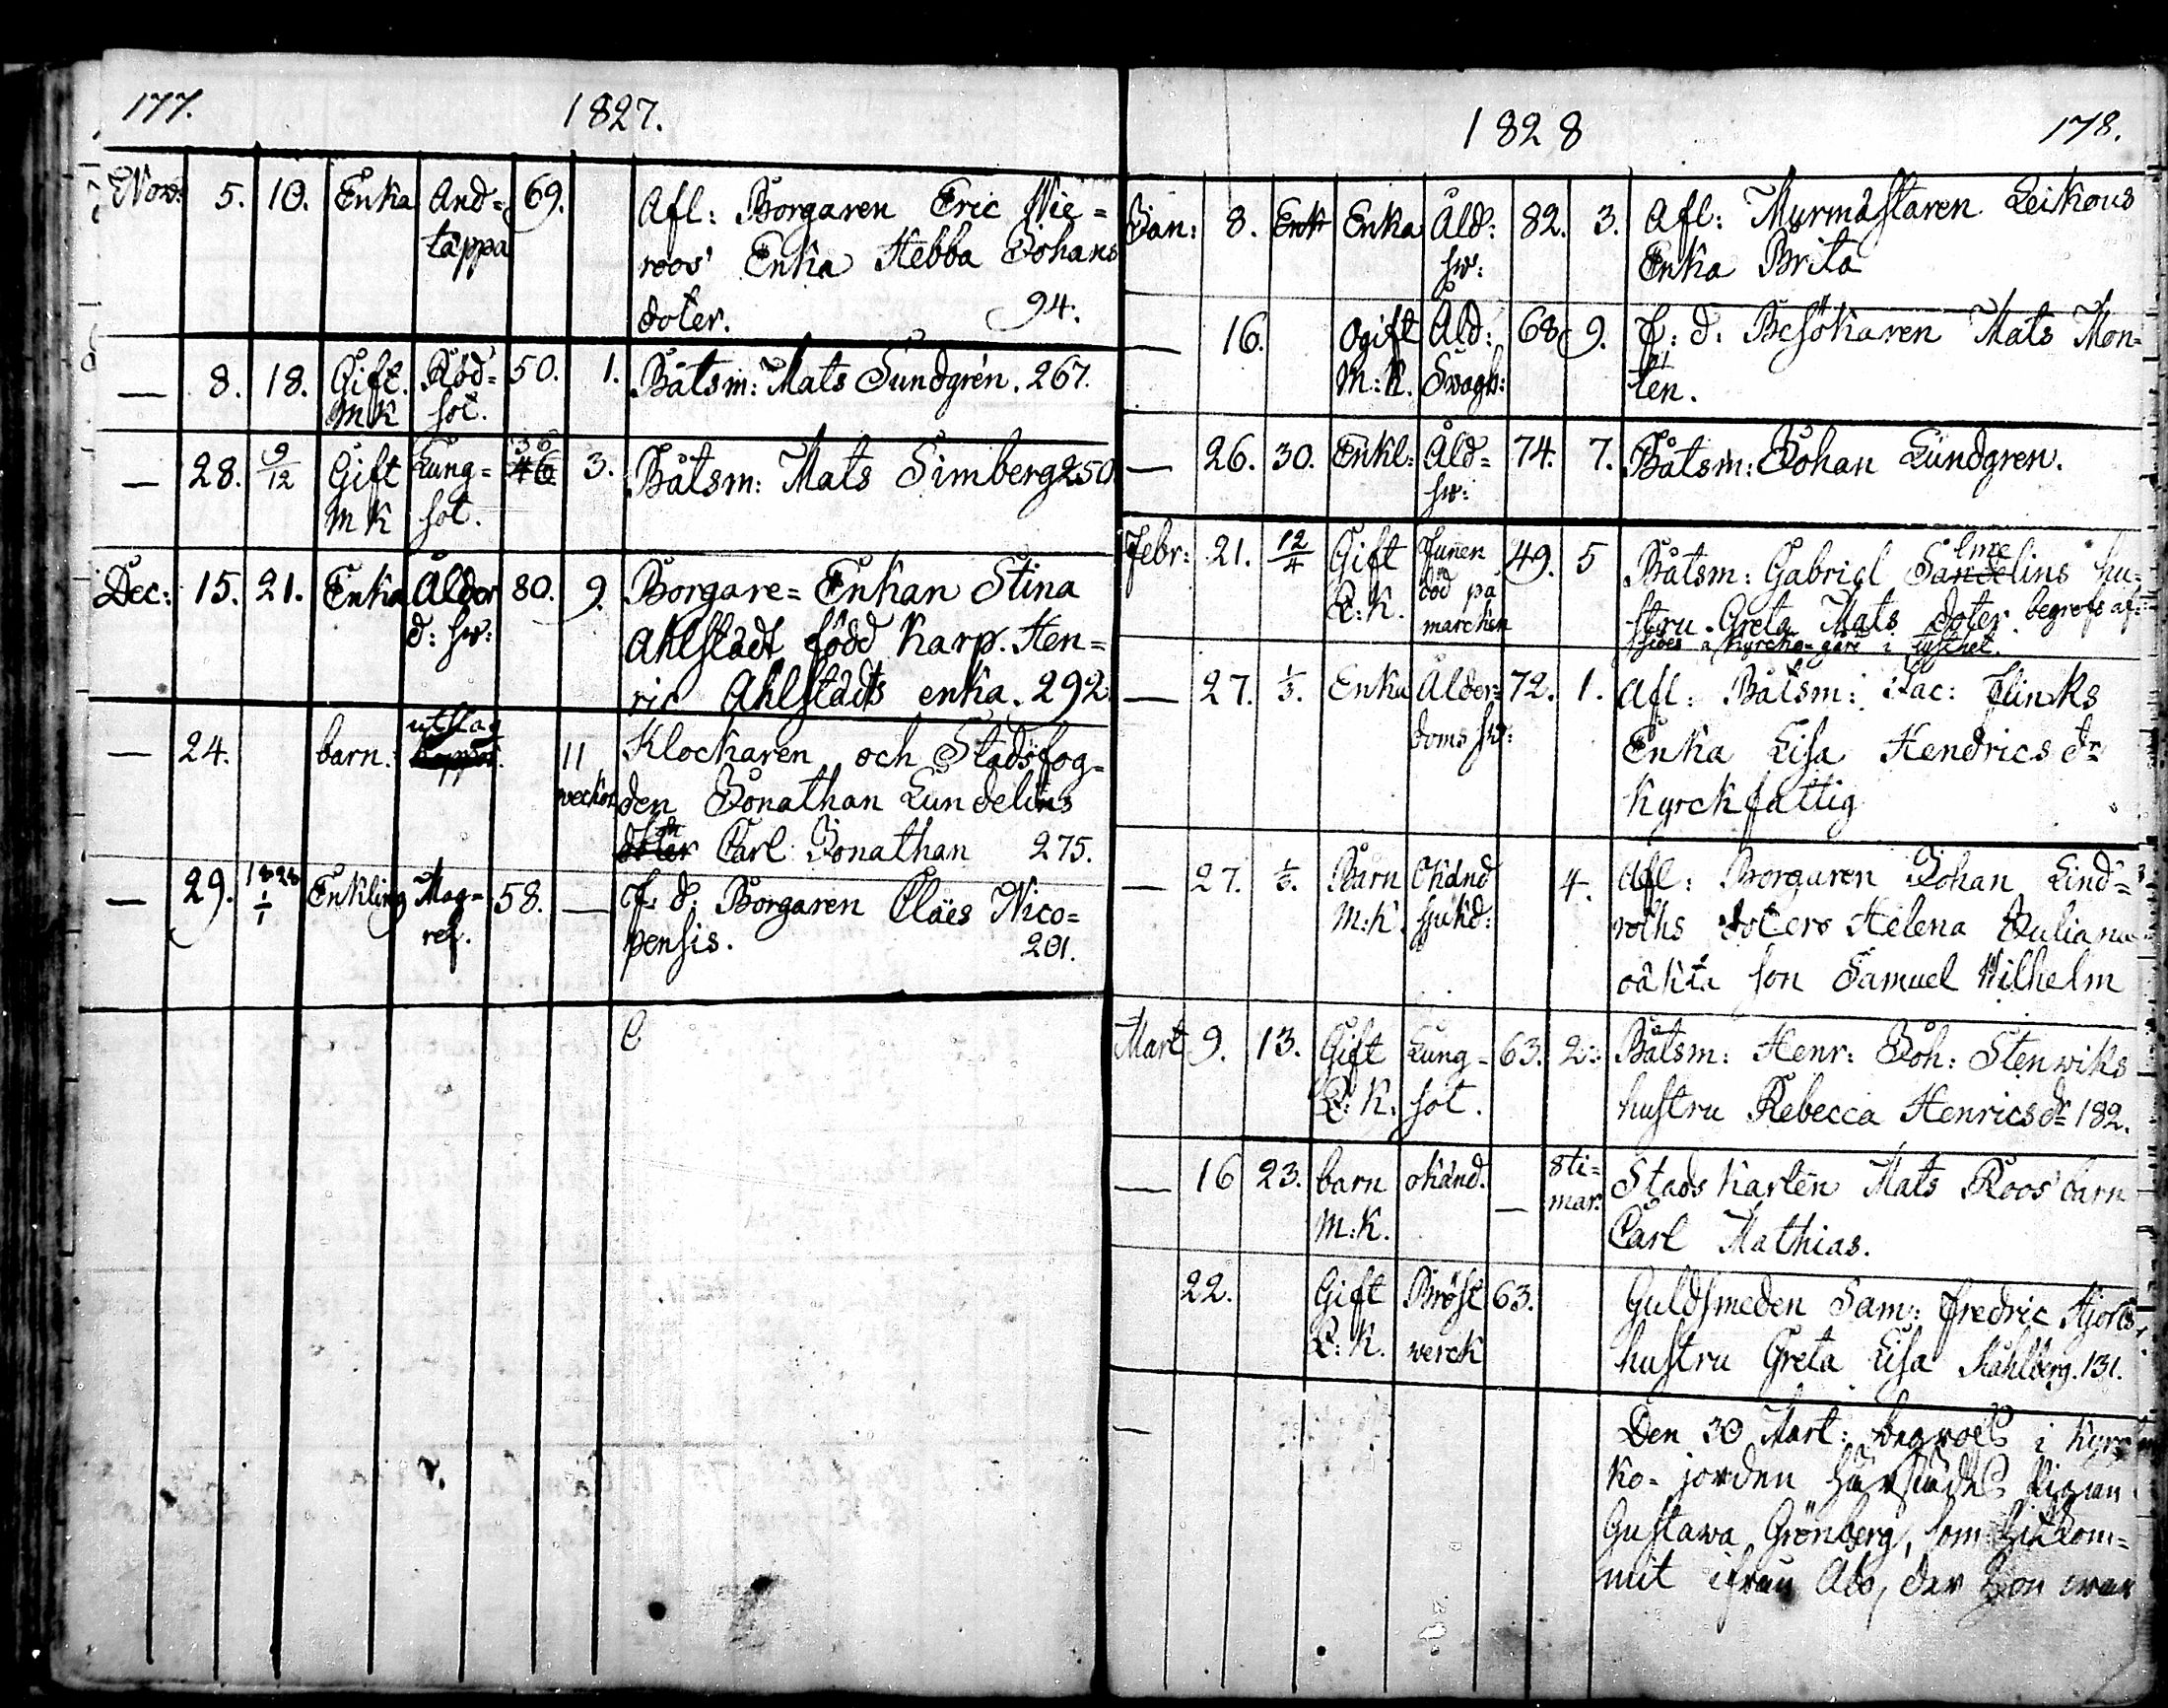 177. 1827.
Nov: 5. 10. Enka And= 69. Afl: Borgaren Eric Wie=
täppa roos' Enka Hebba Johans
doter. 94.
— 8. 18. Gift. Röd= 50. 1. Båtsm: Mats Sundgrén. 267.
M K sot.
— 28. 9/12 Gift Lung= 36 46 3. Båtsm: Mats Simberg 250
M K sot.
Dec: 15. 21. Enka Ålder 80. 9. Borgare= Enkan Stina
d: sw: Ahlstadt född Karp. Hen=
ric Ahlstadts enka. 292
— 24. barn. utslag 11 Klockaren och Stadsfog=
weckor den Jonathan Lundelins
doter Carl Jonathan 275.
— 29. 1828 1/1 Enkling Mag= 58. — F: d: Borgaren Claës Nico=
ref. pensis. 201.
1828 178.
Jan: 8. Enk Enka Åld: 82. 3. Afl: Murmästaren Leikous
sw: Enka Brita
— 16. Ogift Åld: 68 9. F: d: Besökaren Mats Mon=
M:K. Swagh: tén.
— 26. 30. Enkl: Åld= 74. 7. Båtsm: Johan Lundgren.
sw:
Febr: 21. 12/4 Gift Funen 49. 5 Båtsm: Gabriel Sandelins hu=
Q:K. död på stru Greta Mats doter begrofs af=
marcken sides å kyrcko-gård i tysthet.
— 27. 1/3. Enka Ålder= 72. 1. Afl: Båtsm: Isac: Flinks
doms sw: Enka Lisa Hendrics dr
Kyrckfattig
— 27. 1/3. Barn Okänd 4. Afl: Borgaren Johan Lind=
M:K. sjukd: roths doters Helena Juliana
oäkta son Samuel Wilhelm
Mart 9. 13. Gift Lung= 63. 2: Båtsm: Henr: Joh: Stenwiks
Q:K. sot. hustru Rebecca Henricsdr 182.
— 16 23. barn okänd. — 8 ti= Stads karlen Mats Roos' barn
M:K. mar. Carl Mathias.
22. Gift Bröst 63. Guldsmeden Sam: Fredric Hjorts
Q:K. werck hustru Greta Lisa Ståhlberg. 131.
— Den 30 Mart: begrofs i kyrc
ko= jorden härstädes Pigan
Gustawa Grönberg, som hitkom=
mit ifrån Åbo, der hon war